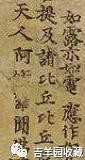 如露亦如電 應作
提及諸比丘比丘
天人阿 聞
吉羊园收藏